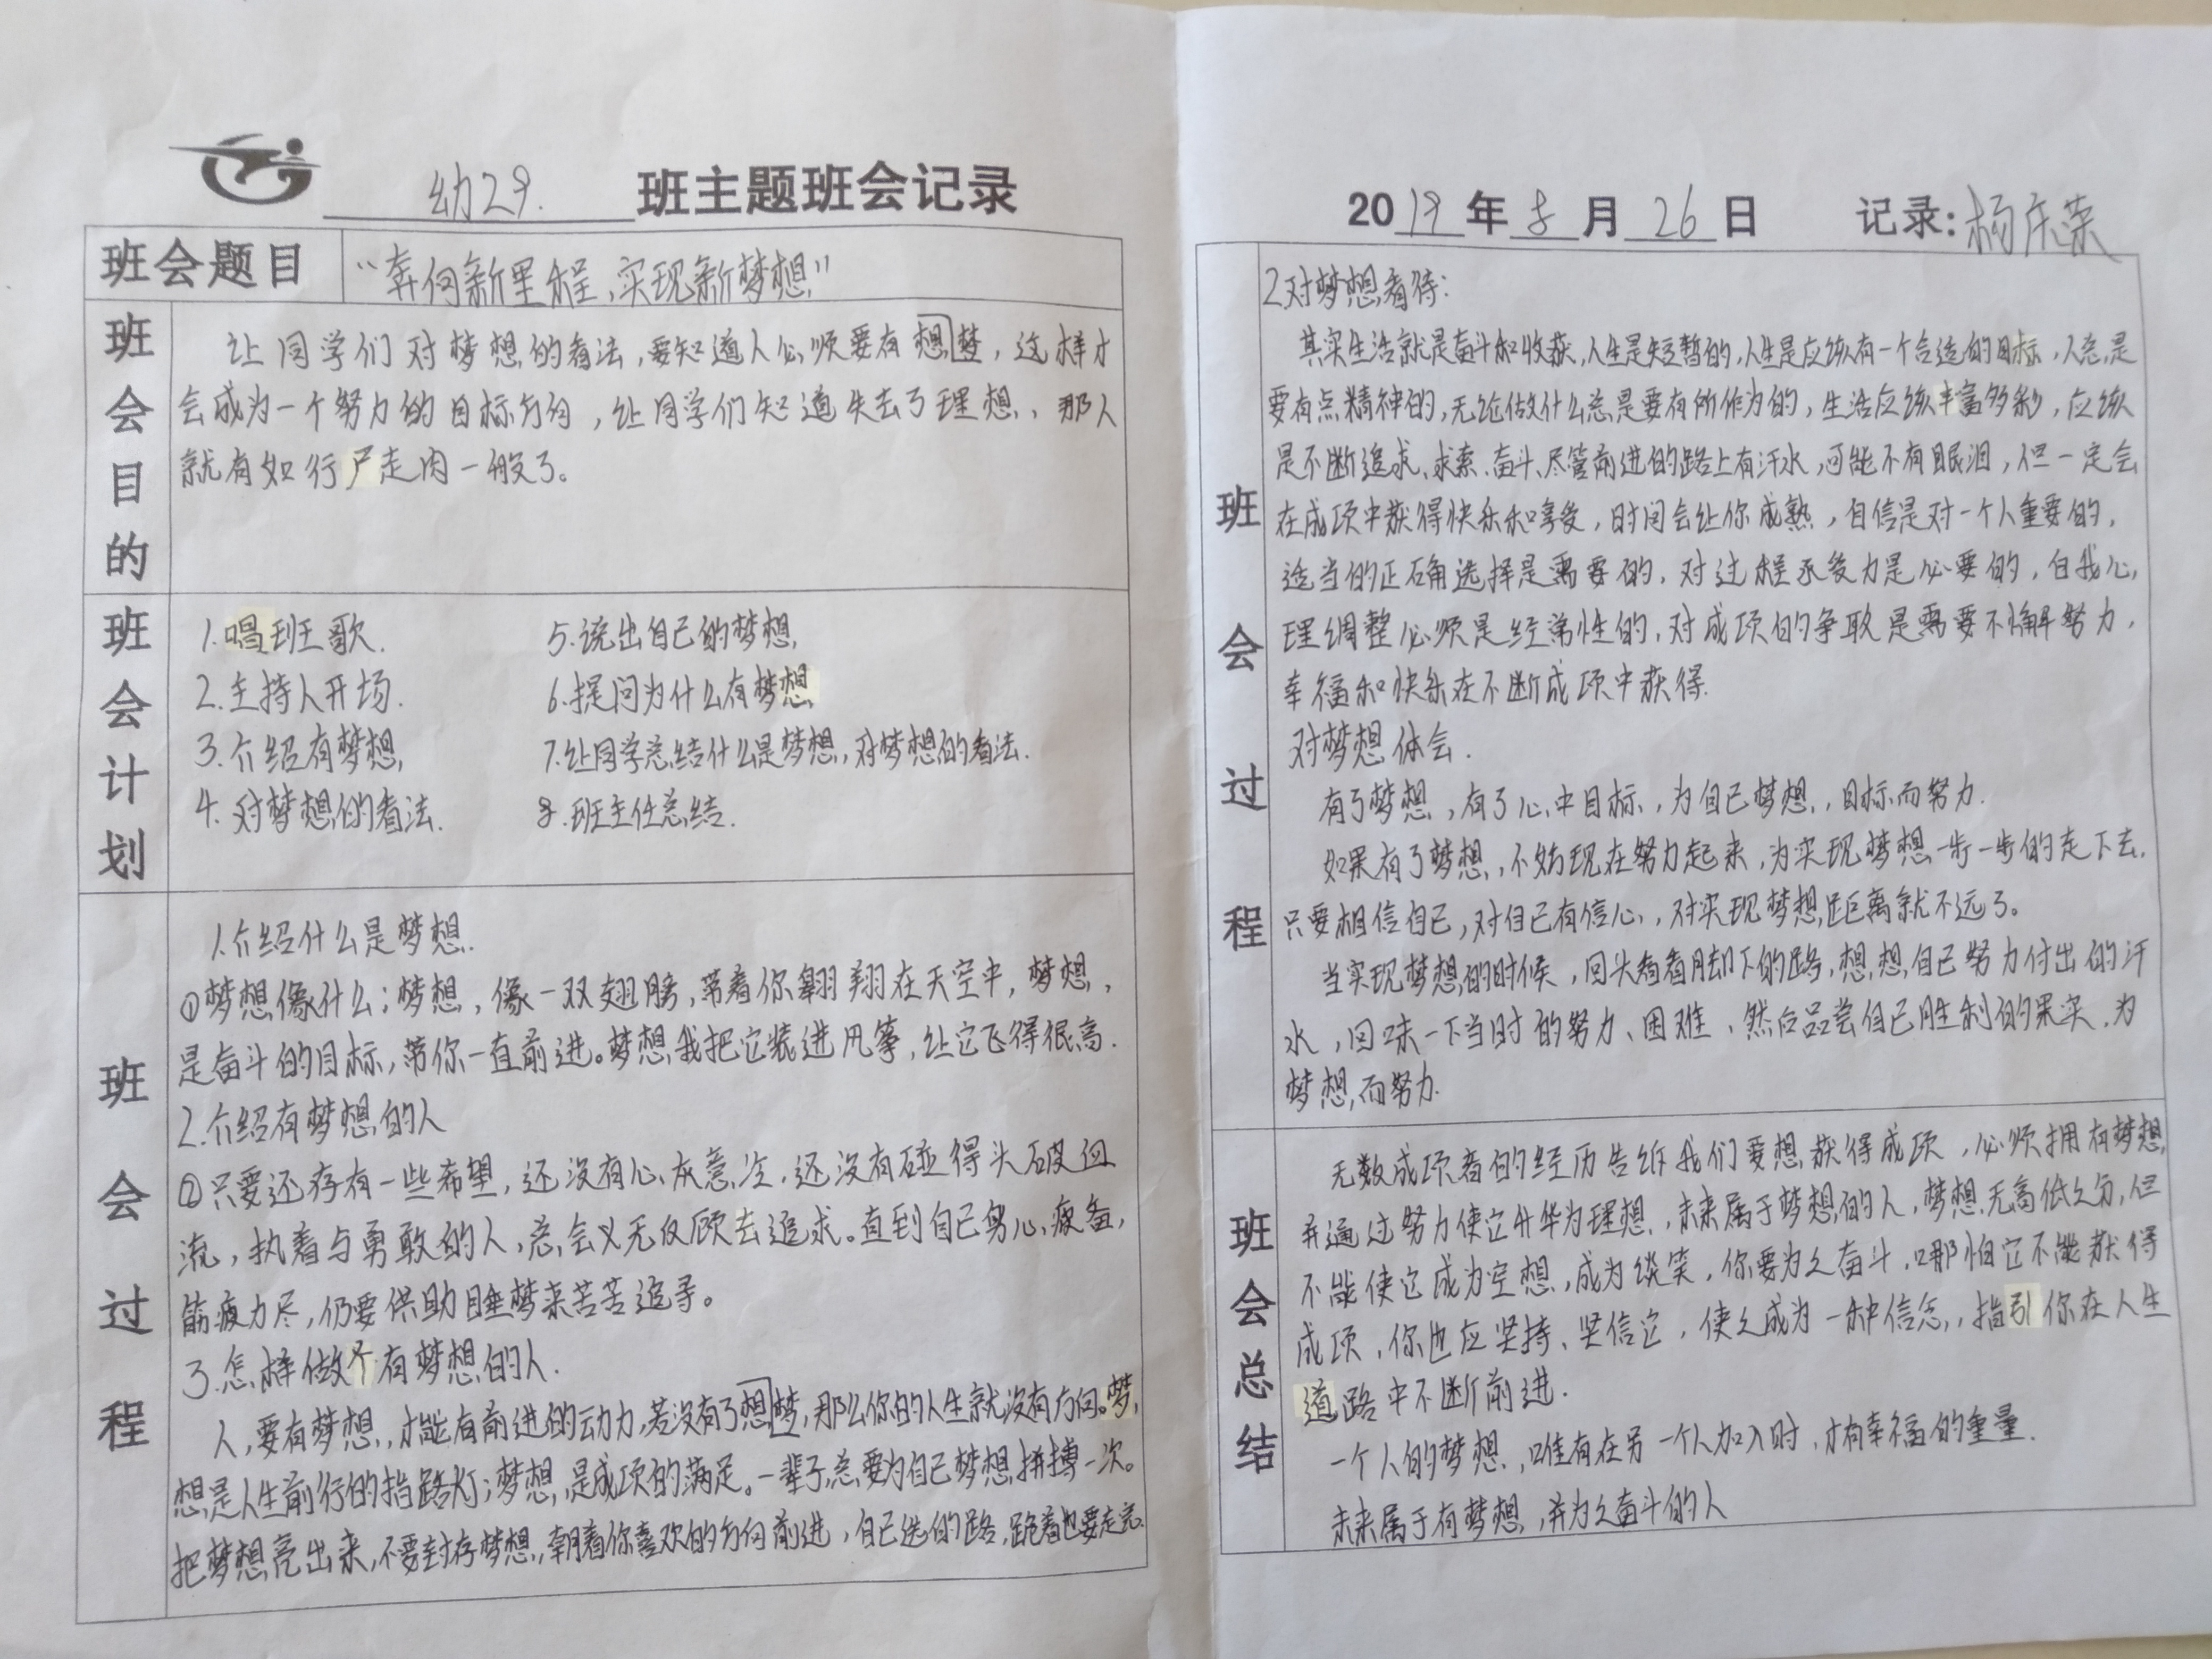 幼29. 班主题班会记录
班会题目 “奔向新里程,实现新梦想”
班会目的
让同学们对梦想的看法,要知道人必须要有想梦,这样才
会成为一个努力的目标方向,让同学们知道失去了理想,那人
就有如行尸走肉一般了。
班会计划
1.唱班歌.
2.主持人开场.
3.介绍有梦想,
4.对梦想的看法.
5.说出自己的梦想,
6.提问为什么有梦想
7.让同学总结什么是梦想,对梦想的看法.
8.班主任总结.
班会过程
1.介绍什么是梦想.
①梦想像什么:梦想,像一双翅膀,带着你翱翔在天空中,梦想,
是奋斗的目标,带你一直前进。梦想,我把它装进风筝,让它飞得很高.
2.介绍有梦想的人
①只要还存有一些希望,还没有心灰意冷.还没有碰得头破血
流,执着与勇敢的人,总会义无反顾去追求。直到自己身心疲备,
筋疲力尽,仍要供助睡梦来苦苦追寻。
3.怎样做个有梦想的人.
人,要有梦想,才能有前进的动力,若没有了想梦,那么你的人生就没有方向。梦,
想是人生前行的指路灯;梦想,是成项的满足。一辈子,总要为自己梦想,拼搏一次。
把梦想亮出来,不要封存梦想,朝着你喜欢的方向前进,自己选的路,跪着也要走完.
2019年8月26日 记录:杨庆荣
班会过程
2.对梦想看待:
其实生活就是奋斗和收获,人生是短暂的,人生是应该有一个合适的目标,人总是
要有点精神的,无论做什么总是要有所作为的,生活应该丰富多彩,应该
是不断追求、求索、奋斗、尽管前进的路上有汗水,可能不有眼泪,但一定会
在成项中获得快乐和享受,时间会让你成熟,自信是对一个人重要的,
适当的正确选择是需要的,对过程承受力是必要的,自我心
理调整必须是经常性的,对成项的争取是需要不懈努力,
幸福和快乐在不断成项中获得.
对梦想体会.
有了梦想,有了心中目标,为自己梦想,目标而努力.
如果有了梦想,不妨现在努力起来,为实现梦想一步一步的走下去,
只要相信自己,对自己有信心,对实现梦想,距离就不远了。
当实现梦想的时候,回头看看脚下的路,想,想,自己努力付出的汗
水,回味一下当时的努力、困难、然后品尝自己胜利的果实,为
梦想,而努力.
班会总结
无数成项者的经历告诉我们要想获得成项,必须拥有梦想,
并通过努力使它升华为理想,未来属于梦想的人,梦想无高低之分,但
不能使它成为空想,成为谈笑,你要为之奋斗,哪怕它不能获得
成项,你也应坚持、坚信它,使之成为一种信念,指引你在人生
道路中不断前进.
一个人的梦想,唯有在另一个人加入时,才有幸福的重量.
未来属于有梦想,并为之奋斗的人